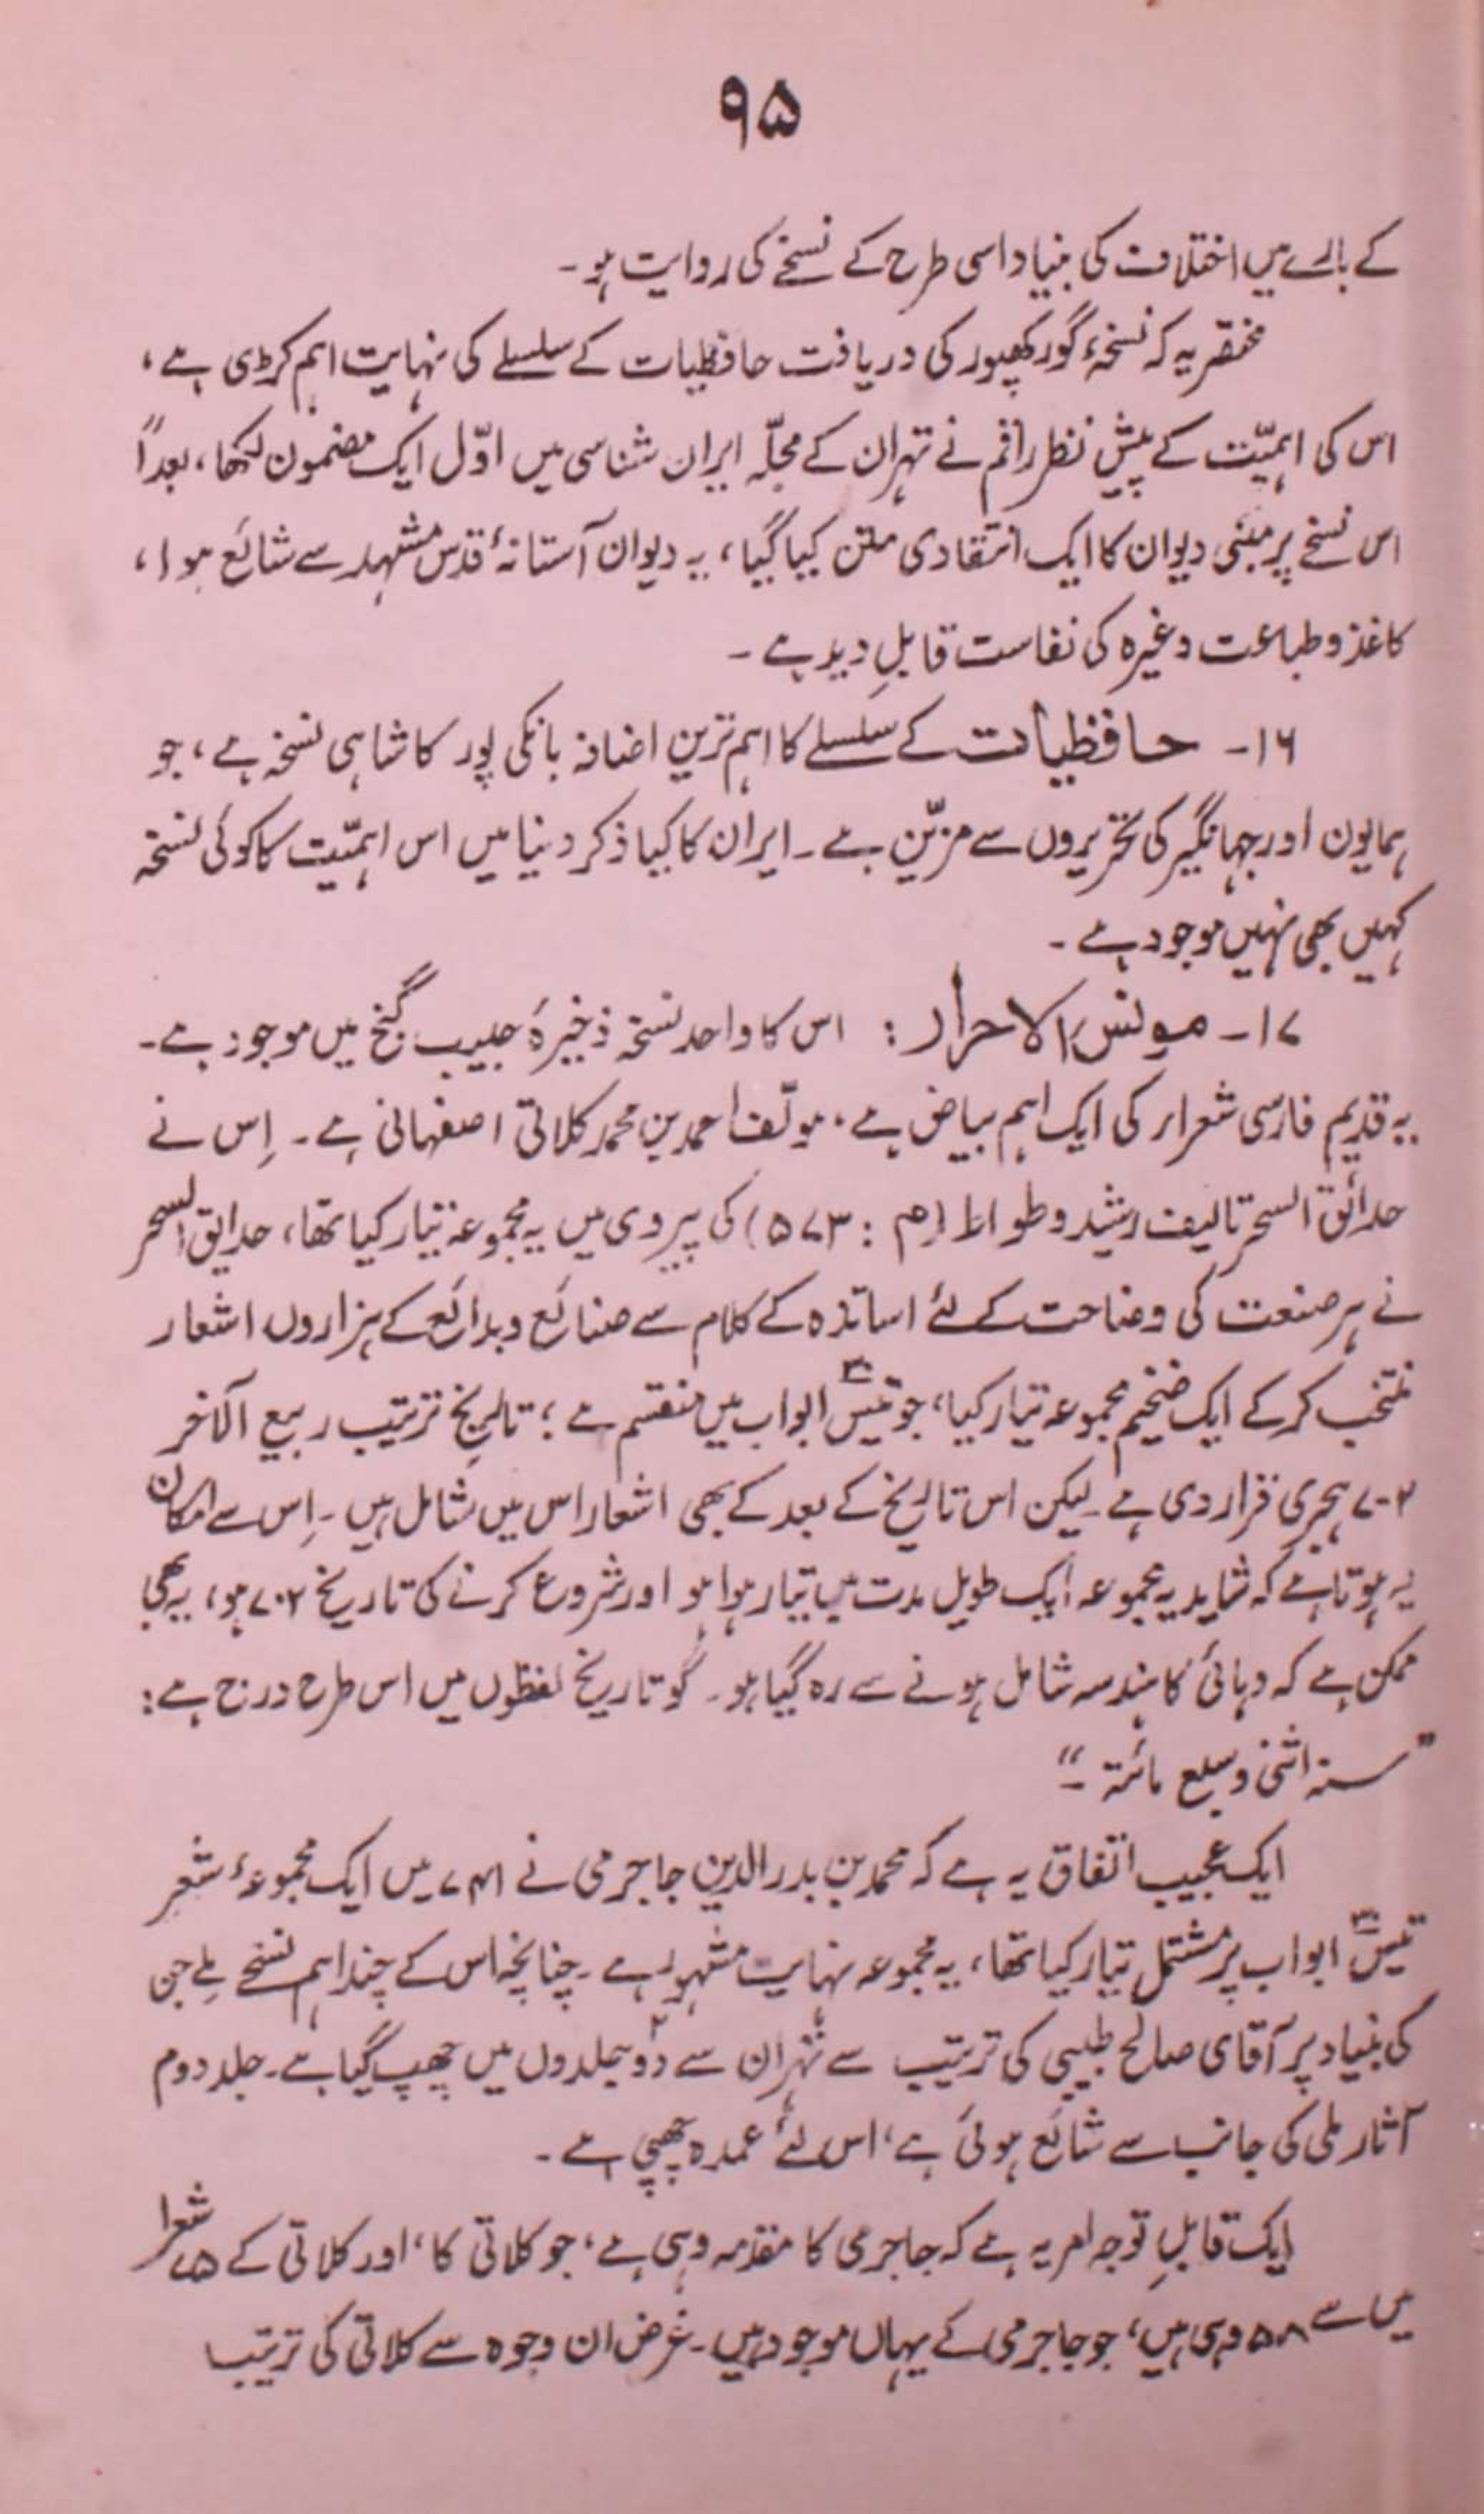 ۹۵
کے بارے میں اختلاف کی بنیاد اسی طرح کے نسخے کی روایت ہو۔
مختصر یہ کہ نسخۂ گورکھپور کی دریافت حافظیات کے سلسلے کی نہایت اہم کڑی ہے،
اس کی اہمیّت کے پیشِ نظر راقم نے تہران کے مجلّہ ایران شناسی میں اوّل ایک مضمون لکھا، بعداً
اس نسخے پر مبنی دیوان کا ایک انتقادی متن کیا گیا، یہ دیوان آستانۂ قدس مشہد سے شائع ہوا،
کاغذ و طباعت وغیرہ کی نفاست قابلِ دید ہے۔
۱۶- حافظیات کے سلسلے کا اہم ترین اضافہ بانکی پور کا شاہی نسخہ ہے، جو
ہمایون اور جہانگیر کی تحریروں سے مزیّن ہے۔ ایران کا کیا ذکر دنیا میں اس اہمیّت کا کوئی نسخہ
کہیں بھی نہیں موجود ہے۔
۱۷- مونس الاحرار: اس کا واحد نسخہ ذخیرۂ حبیب گنج میں موجود ہے۔
یہ قدیم فارسی شعراء کی ایک اہم بیاض ہے، مولّف احمد بن محمد کلاتی اصفہانی ہے۔ اِس نے
حدائق السحر تالیف رشید وطواط (م: ۵۷۳) کی پیروی میں یہ مجموعہ تیار کیا تھا، حدایق السحر
نے ہر صنعت کی وضاحت کے لئے اساتذہ کے کلام سے صنائع و بدائع کے ہزاروں اشعار
منتخب کر کے ایک ضخیم مجموعہ تیار کیا، جو تیس۳۰ ابواب میں منقسم ہے؛ تاریخِ ترتیب ربیع الآخر
۷۰۲ ہجری قرار دی ہے۔ لیکن اس تاریخ کے بعد کے بھی اشعار اس میں شامل ہیں۔ اِس سے امکان
یہ ہوتا ہے کہ شاید یہ مجموعہ ایک طویل مدت میں تیار ہوا ہو اور شروع کرنے کی تاریخ ۷۰۲ ہو، یہ بھی
ممکن ہے کہ دہائی کا ہندسہ شامل ہونے سے رہ گیا ہو۔ گو تاریخ لفظوں میں اس طرح درج ہے:
”سنہ اثنی و سبع مائۃ۔“
ایک عجیب اتفاق یہ ہے کہ محمد بن بدر الدین جاجرمی نے ۷۴۱ میں ایک مجموعۂ شعر
تیس۳۰ ابواب پر مشتمل تیار کیا تھا، یہ مجموعہ نہایت مشہور ہے۔ چنانچہ اس کے چند اہم نسخے ملے جن
کی بنیاد پر آقای صالح طبیبی کی ترتیب سے تہران سے دو۲ جلدوں میں چھپ گیا ہے۔ جلد دوم
آثار ملی کی جانب سے شائع ہوئی ہے، اس لئے عمدہ چھپی ہے۔
ایک قابلِ توجہ امر یہ ہے کہ جاجرمی کا مقدمہ وہی ہے، جو کلاتی کا، اور کلاتی کے ۷۵ شعرا
میں سے ۵۸ وہی ہیں، جو جاجرمی کے یہاں موجود ہیں۔ غرض ان وجوہ سے کلاتی کی ترتیب